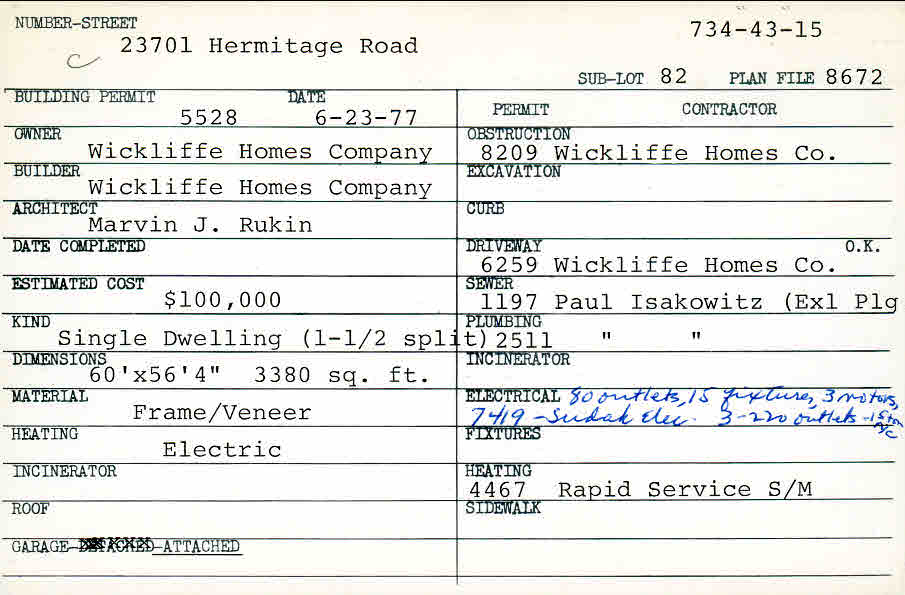 NUMBER-STREET
23701 Hermitage Road
734-43-15
C
SUB-LOT 82 PLAN FILE 8672
BUILDING PERMIT DATE
5528 6-23-77
PERMIT CONTRACTOR
OWNER
Wickliffe Homes Company
OBSTRUCTION
8209 Wickliffe Homes Co.
BUILDER
Wickliffe Homes Company
EXCAVATION
ARCHITECT
Marvin J. Rukin
CURB
DATE COMPLETED
DRIVEWAY O.K.
6259 Wickliffe Homes Co.
ESTIMATED COST
$100,000
SEWER
1197 Paul Isakowitz (Exl Plg
KIND
Single Dwelling (1-1/2 split)
PLUMBING
2511 " "
DIMENSIONS
60'x56'4" 3380 sq. ft.
INCINERATOR
MATERIAL
Frame/Veneer
ELECTRICAL 80 outlets, 15 fixtures, 3 motors,
7419 - Sudak Elec. 3-220 outlets -
HEATING
Electric
FIXTURES
INCINERATOR
HEATING
4467 Rapid Service S/M
ROOF
SIDEWALK
GARAGE-DETACHED-ATTACHED